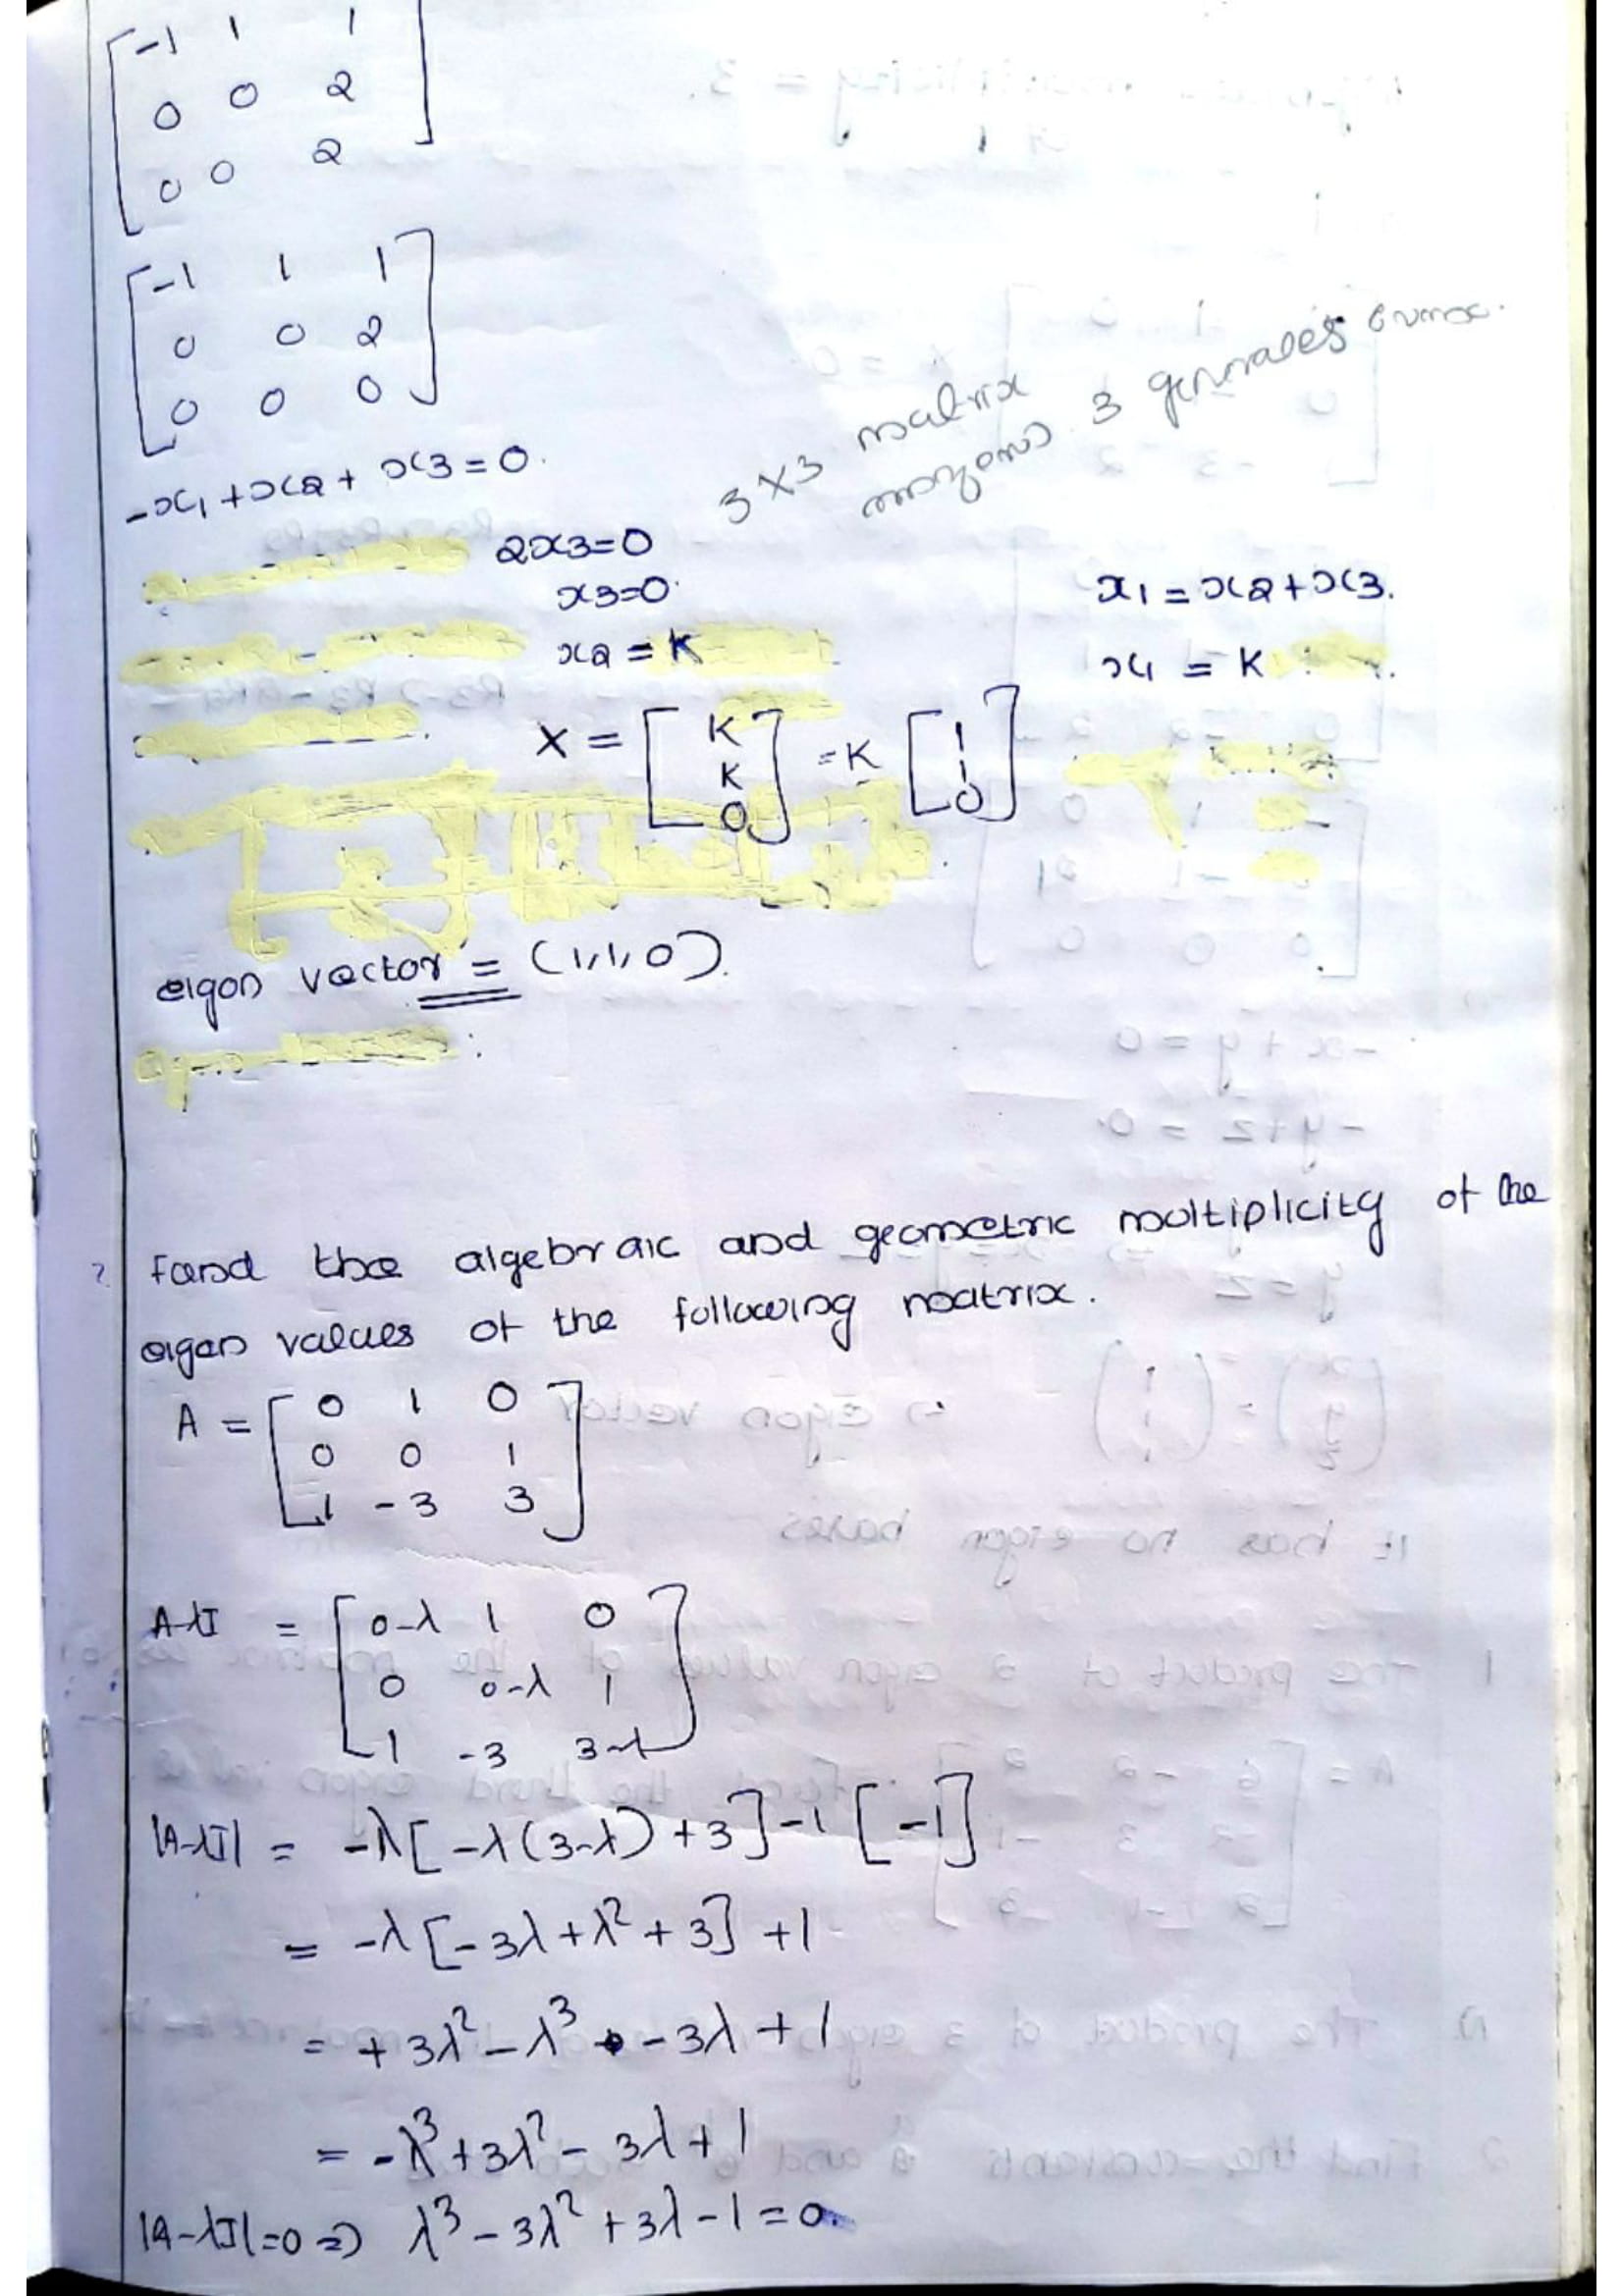 [-1 1 1
0 0 2
0 0 2]
[-1 1 1
0 0 2
0 0 0]
-x1 + x2 + x3 = 0.
3x3 matrix
3
2x3=0
x3=0.
x1 = x2+x3.
x2 = K
x1 = K
X = [K K 0] = K [1 1 0]
eigen vector = (1,1,0).
? Find the algebraic and geometric multiplicity of the
eigen values of the following matrix.
A = [0 1 0
0 0 1
1 -3 3]
A-λI = [0-λ 1 0
0 0-λ 1
1 -3 3-λ]
|A-λI| = -λ[-λ(3-λ)+3]-1[-1]
= -λ[-3λ+λ²+3]+1
= +3λ²-λ³-3λ+1
= -λ³+3λ²-3λ+1
|A-λI|=0 => λ³-3λ²+3λ-1=0.